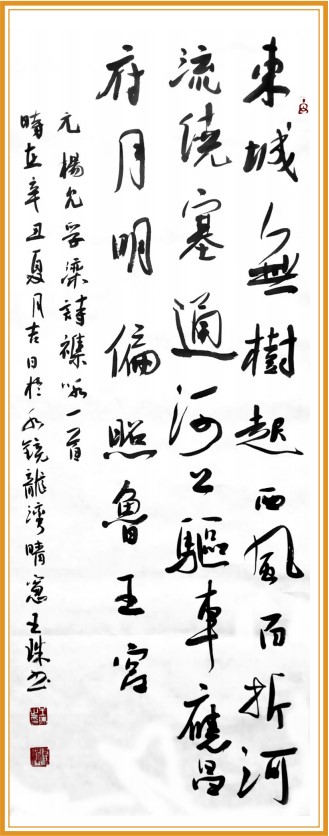 東城無樹起西風百折河
流繞塞通河上驅車應昌
府月明偏照魯王宮
元楊允孚灤詩襍咏一首
時在辛丑夏月吉日於水鏡龍灣晴窗王珠书